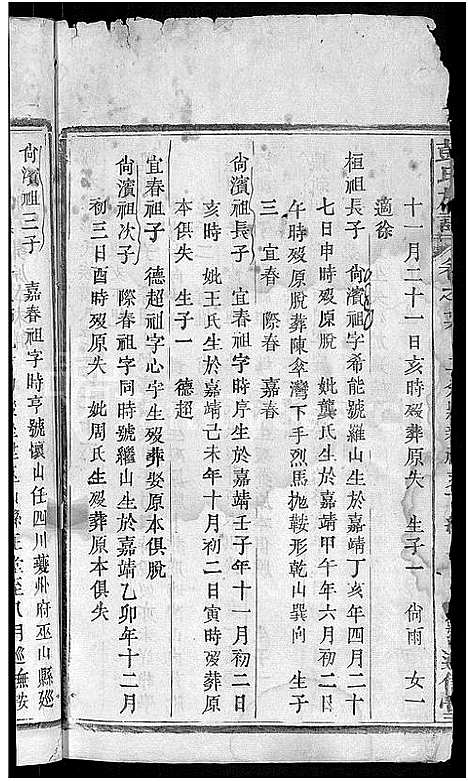 十一月二十一日亥時歿葬原失　生子一　尙雨　女一
適徐
桓祖長子　尙濱祖字希能號羅山生於嘉靖丁亥年四月二十
七日申時歿原脫　妣龔氏生於嘉靖甲午年六月初二日
午時歿原脫葬陳傘灣下手烈馬抛鞍形乾山巽向　生子
三　宜春　際春　嘉春
尙濱祖長子　宜春祖字時序生於嘉靖壬子年十一月初二日
亥時　妣王氏生於嘉靖己未年十月初二日寅時歿葬原
本俱失　生子一　德超
宜春祖子　德超祖字心宇生歿葬娶原本俱脫
尙濱祖次子　際春祖字同時號繼山生於嘉靖乙卯年十二月
初三日酉時歿原失　妣周氏生歿葬原本俱失
尙濱祖三子　嘉春祖字時亨號懷山任四川夔州府巫山縣廵